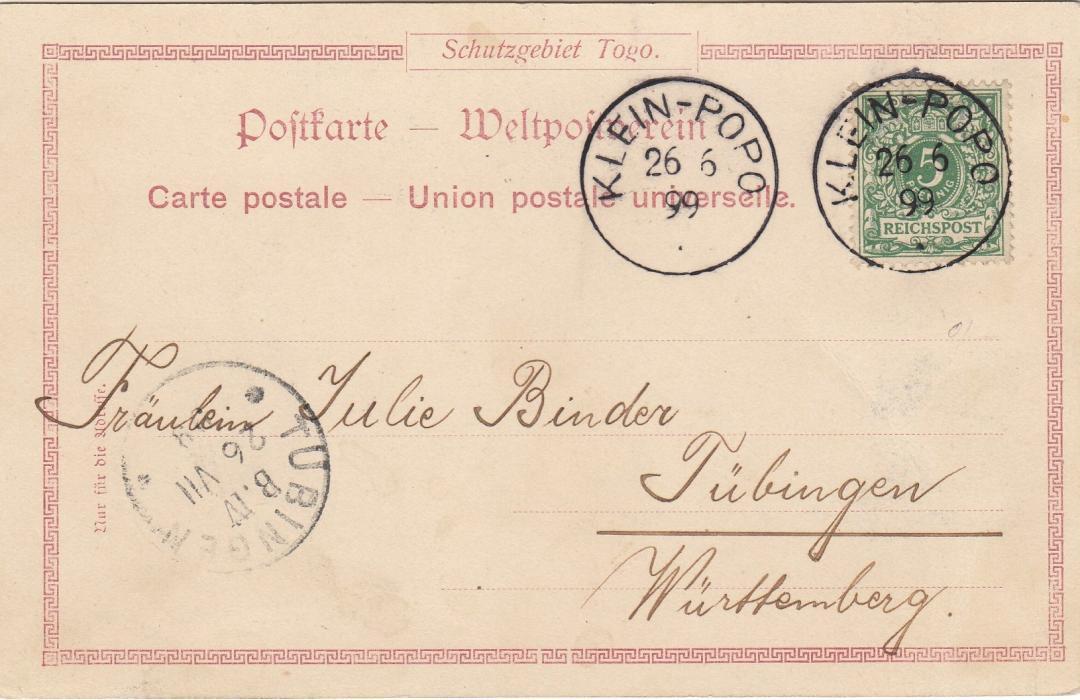 Schutzgebiet Togo.
Postkarte — Weltpostverein
Carte postale — Union postale universelle.
KLEIN-POPO
26 6
99
KLEIN-POPO
26 6
99
5
REICHSPOST
Fräulein Julie Binder
Tübingen
Württemberg.
Nur für die Adresse.
TÜBINGEN
B.IV
26 VII